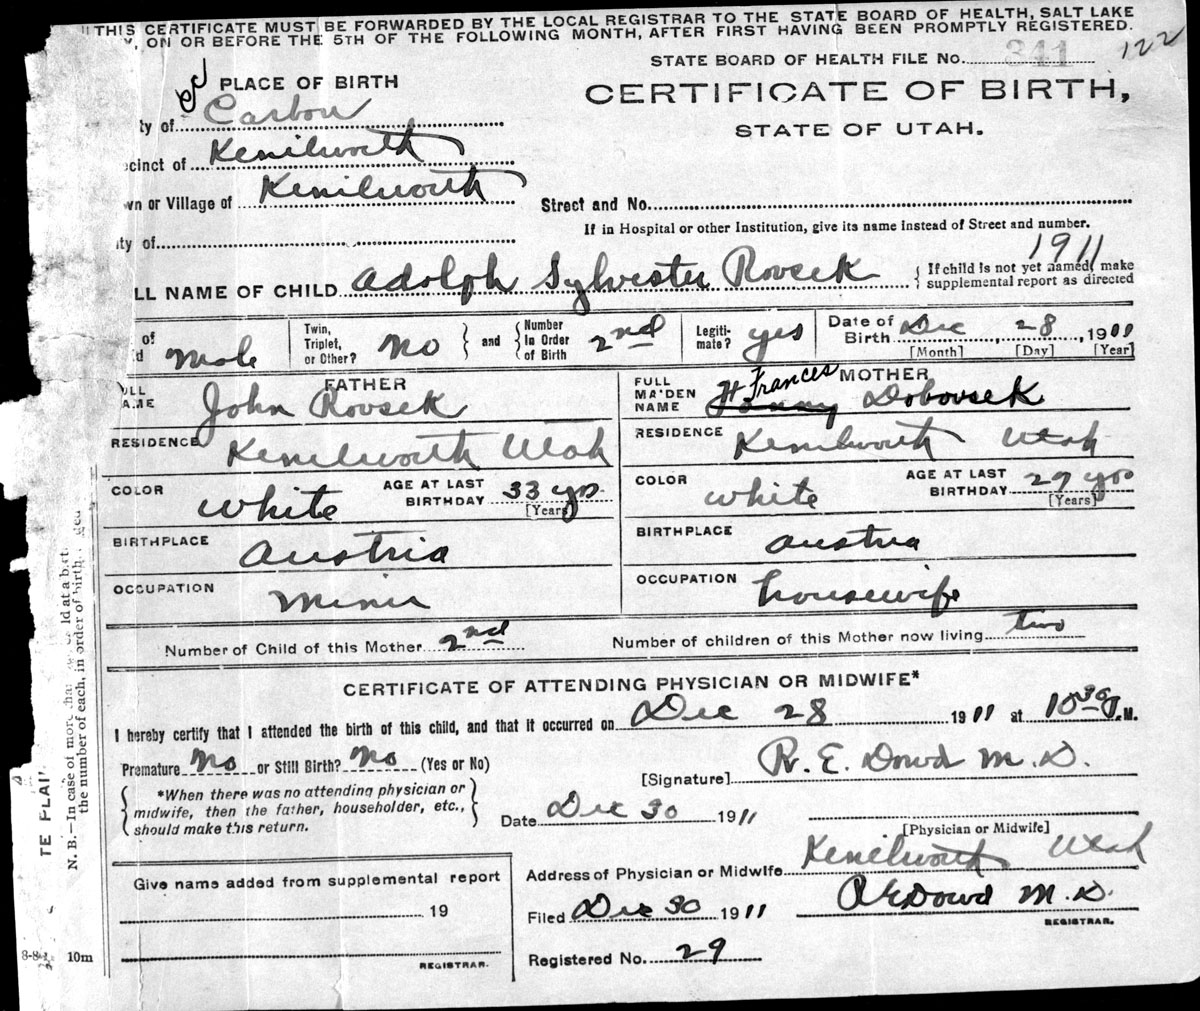 THIS CERTIFICATE MUST BE FORWARDED BY THE LOCAL REGISTRAR TO THE STATE BOARD OF HEALTH, SALT LAKE
, ON OR BEFORE THE 5TH OF THE FOLLOWING MONTH, AFTER FIRST HAVING BEEN PROMPTLY REGISTERED.
STATE BOARD OF HEALTH FILE No. 341 122
PLACE OF BIRTH
CERTIFICATE OF BIRTH,
STATE OF UTAH.
ty of Carbon
cinct of Kenilworth
wn or Village of Kenilworth
Street and No.
ity of
If in Hospital or other Institution, give its name instead of Street and number.
1911
LL NAME OF CHILD Adolph Sylvester Rovsek { If child is not yet named, make supplemental report as directed
of Male
Twin, Triplet, or Other? No } and { Number In Order of Birth 2nd
Legitimate? yes
Date of Birth Dec 28, 1911
[Month] [Day] [Year]
FATHER
ULL AME John Rovsek
RESIDENCE Kenilworth Utah
COLOR White AGE AT LAST BIRTHDAY 33 yrs [Years]
BIRTHPLACE Austria
OCCUPATION Miner
MOTHER
FULL MAIDEN NAME Frances Dobovsek
RESIDENCE Kenilworth Utah
COLOR White AGE AT LAST BIRTHDAY 29 yrs [Years]
BIRTHPLACE Austria
OCCUPATION Housewife
Number of Child of this Mother 2nd Number of children of this Mother now living two
CERTIFICATE OF ATTENDING PHYSICIAN OR MIDWIFE*
I hereby certify that I attended the birth of this child, and that it occurred on Dec 28 1911 at 10 30 M.
Premature No or Still Birth? No (Yes or No)
[Signature] R. E. Dowd M. D.
*When there was no attending physician or
midwife, then the father, householder, etc.,
should make this return.
Date Dec 30 1911
[Physician or Midwife]
Address of Physician or Midwife Kenilworth Utah
Give name added from supplemental report
19
REGISTRAR.
Filed Dec 30 1911 R E Dowd M. D.
REGISTRAR.
Registered No. 29
TE PLAI
N. B.—In case of more tha
the number of each, in order of birth
10m